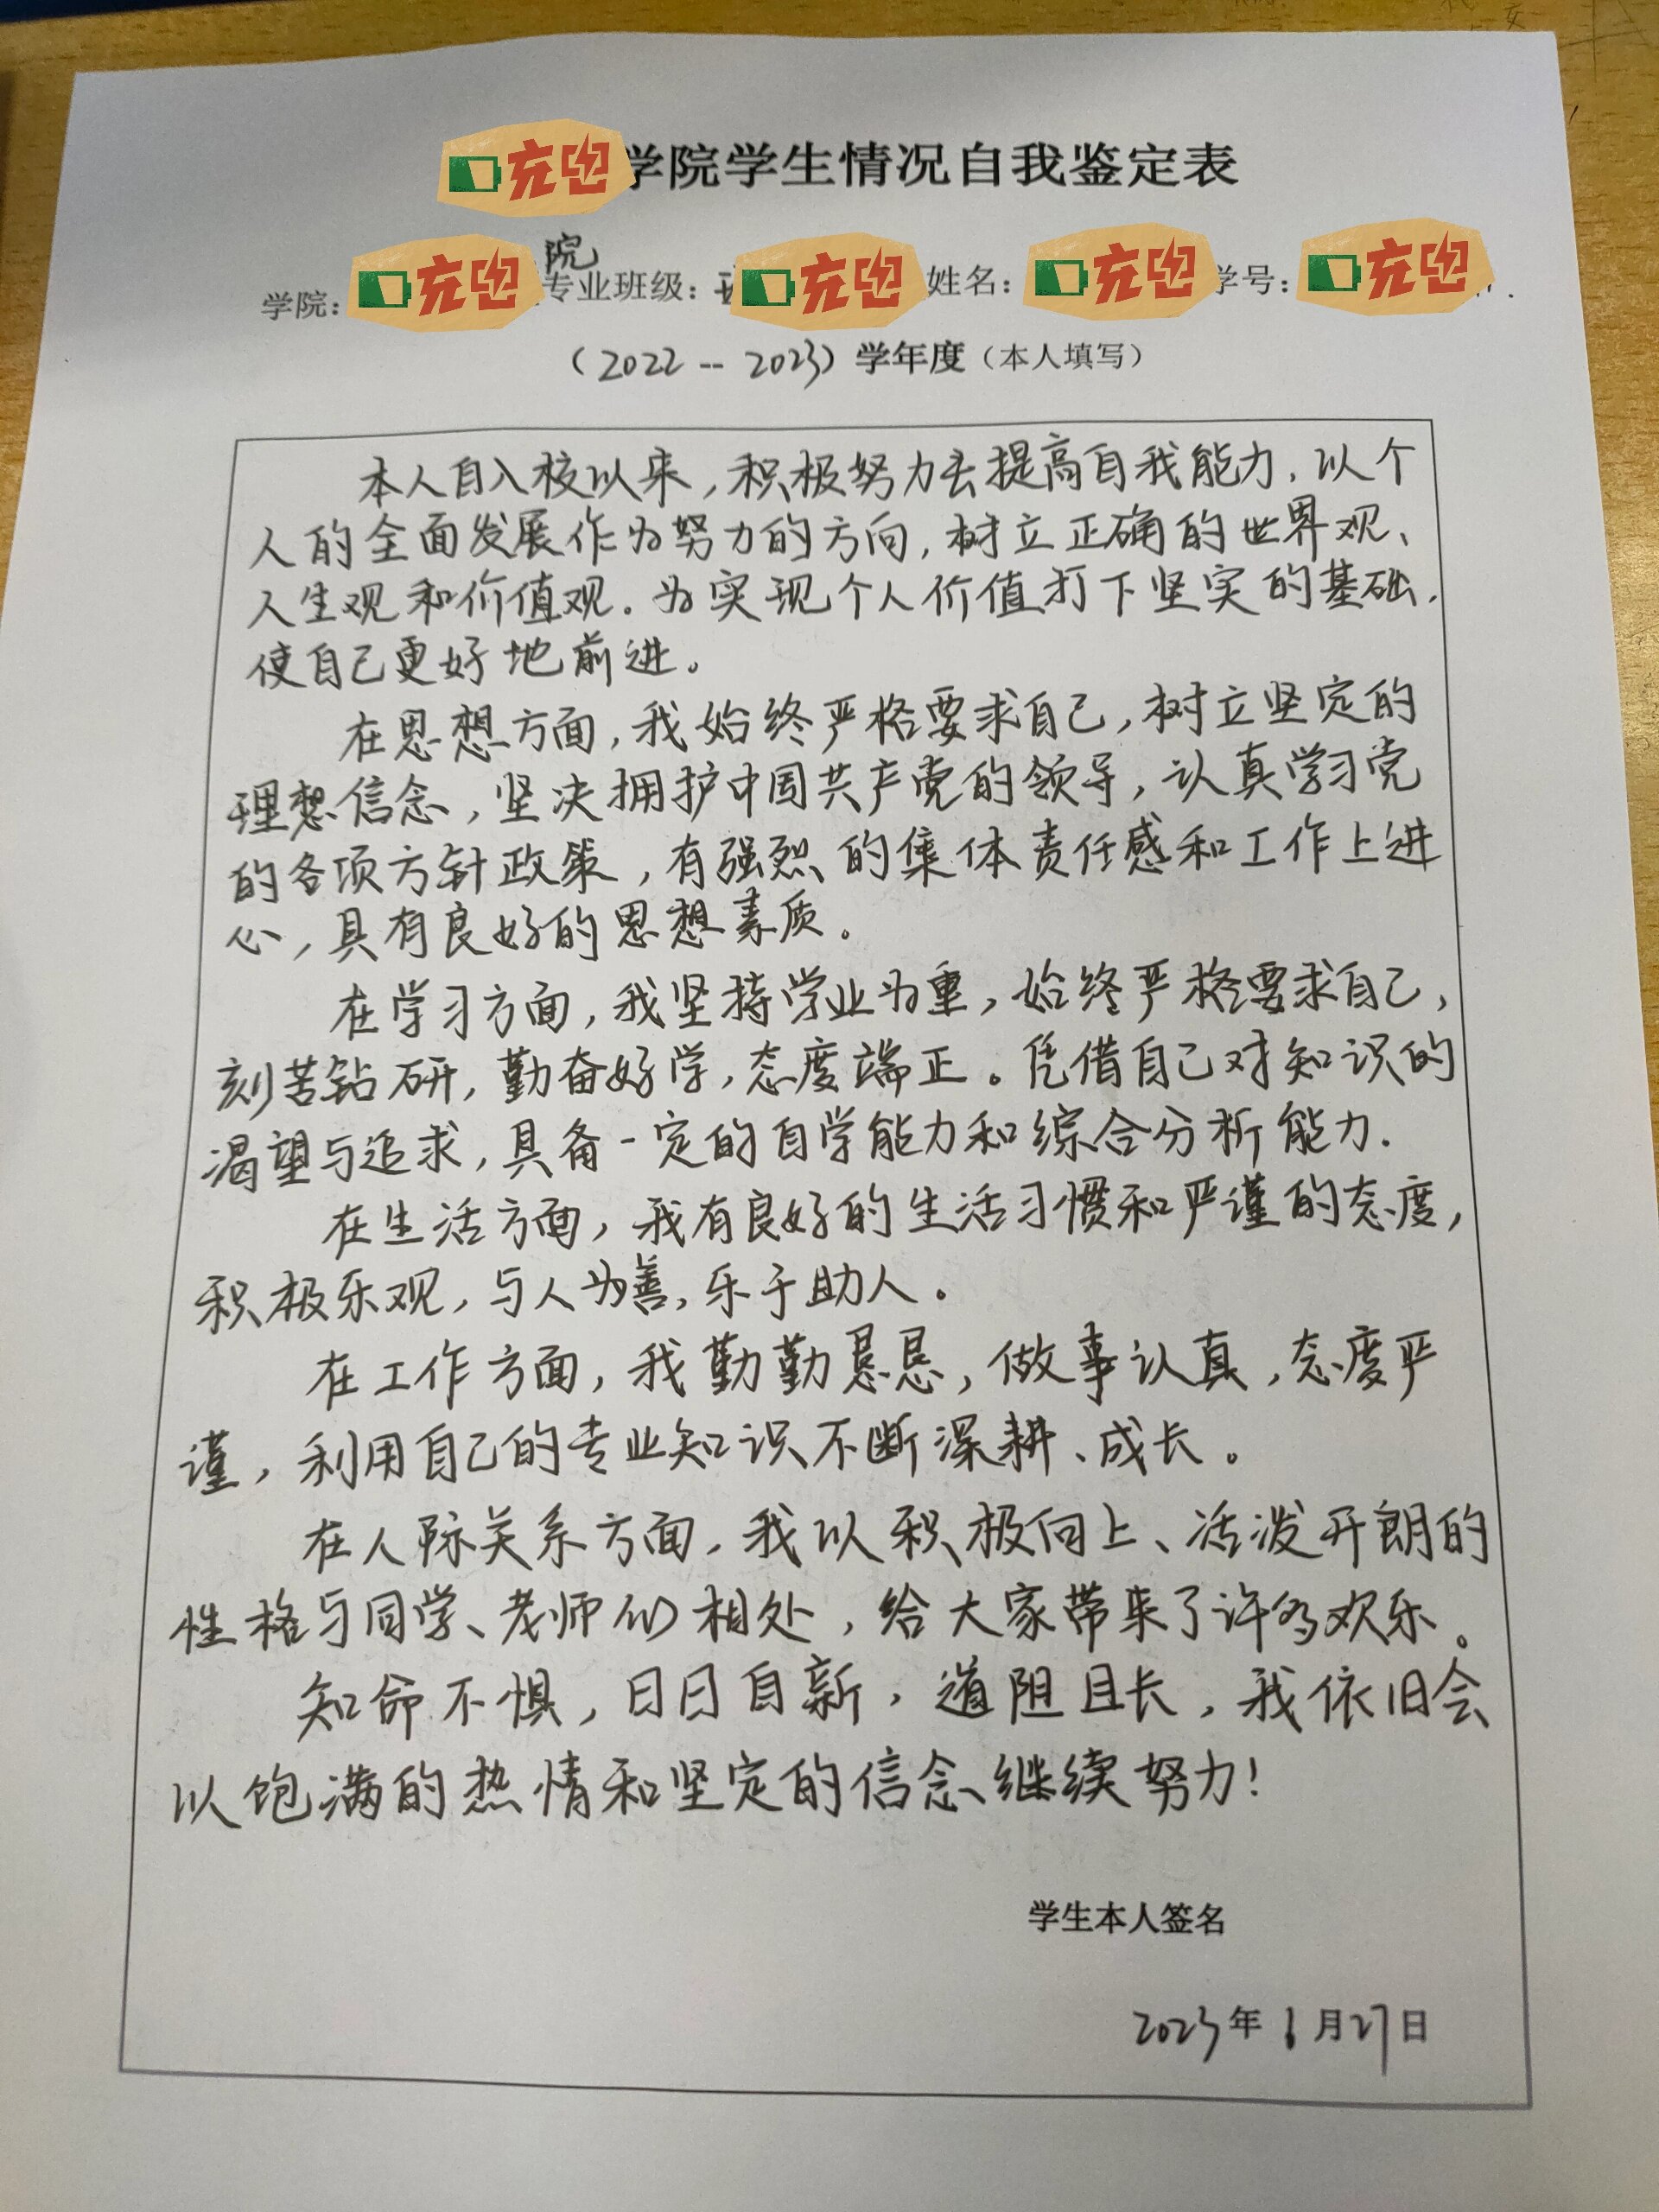 充电学院学生情况自我鉴定表
院
学院：充电专业班级：充电姓名：充电学号：充电
（2022--2023）学年度（本人填写）
本人自入校以来，积极努力去提高自我能力，以个
人的全面发展作为努力的方向，树立正确的世界观、
人生观和价值观。为实现个人价值打下坚实的基础，
使自己更好地前进。
在思想方面，我始终严格要求自己，树立坚定的
理想信念，坚决拥护中国共产党的领导，认真学习党
的各项方针政策，有强烈的集体责任感和工作上进
心，具有良好的思想素质。
在学习方面，我坚持学业为重，始终严格要求自己，
刻苦钻研，勤奋好学，态度端正。凭借自己对知识的
渴望与追求，具备一定的自学能力和综合分析能力.
在生活方面，我有良好的生活习惯和严谨的态度，
积极乐观，与人为善，乐于助人。
在工作方面，我勤勤恳恳，做事认真，态度严
谨，利用自己的专业知识不断深耕、成长。
在人际关系方面，我以积极向上、活泼开朗的
性格与同学、老师们相处，给大家带来了许多欢乐。
知命不惧，日日自新，道阻且长，我依旧会
以饱满的热情和坚定的信念继续努力！
学生本人签名
2023年6月27日